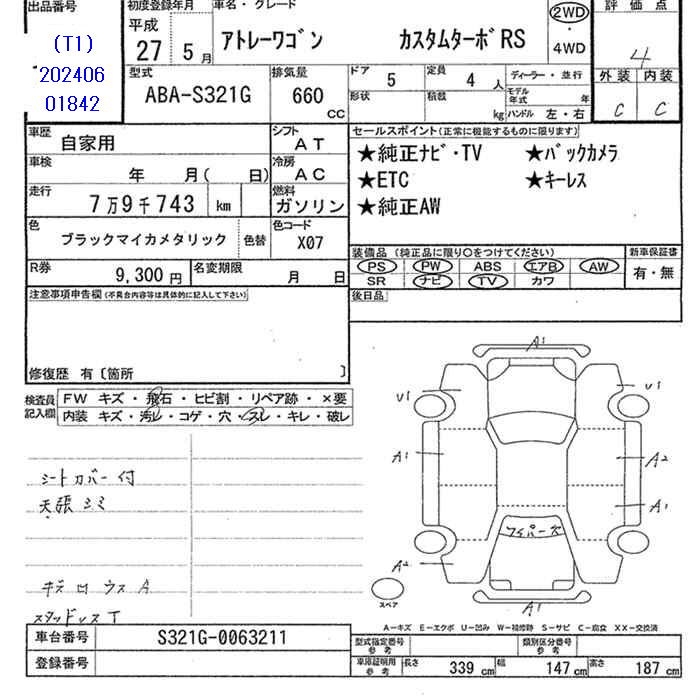 出品番号 初度登録年月 車名・グレード 評価点
(T1)
202406
01842
平成
27 5月 アトレーワゴン カスタムターボRS 2WD
・
4WD
4
型式 排気量 ドア 5 定員 4人 ディーラー・並行 外装 内装
ABA-S321G 660 CC 形状 積載 kg モデル年式 年
ハンドル 左・右 C C
車歴 自家用 シフト AT
車検 年 月( 日) 冷房 AC
走行 7万9千743 km 燃料 ガソリン
色 ブラックマイカメタリック 色替 色コード X07
R券 9,300円 名変期限 月 日
セールスポイント(正常に機能するものに限ります)
★純正ナビ・TV ★バックカメラ
★ETC ★キーレス
★純正AW
装備品 (純正品に限り○をつけてください) 新車保証書
PS PW ABS エアB AW 有・無
SR ナビ TV カワ
後日品
注意事項申告欄(不具合内容等は具体的に記入して下さい)
修復歴 有〔箇所 〕
検査員記入欄 FW キズ・飛石・ヒビ割・リペア跡・×要
内装 キズ・汚レ・コゲ・穴・スレ・キレ・破レ
シートカバー付
天張シミ
A
スタッドレスT
A1
U1 U1
A1 A2
A1
ワイパーズ
A2
A1
スペア
A-キズ E-エクボ U-凹み W-補修跡 S-サビ C-腐食 XX-交換済
車台番号 S321G-0063211
登録番号
型式指定番号参考 類別区分番号参考
車庫証明用参考 長さ 339cm 幅 147cm 高さ 187cm